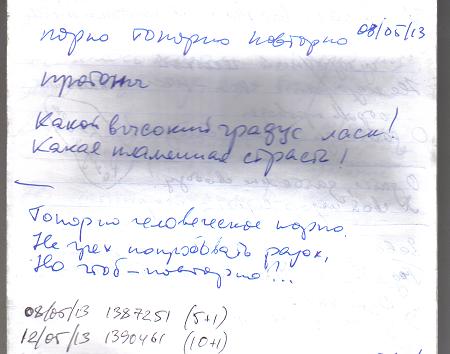 порно топорно повторно 08/05/13
протоны
Какой высокий градус ласк!
Какая пламенная страсть!
Топорно человеческое порно.
Не грех попробовать разок,
Но чтоб - повторно!?...
08/05/13 1387251 (5+1)
12/05/13 1390461 (10+1)